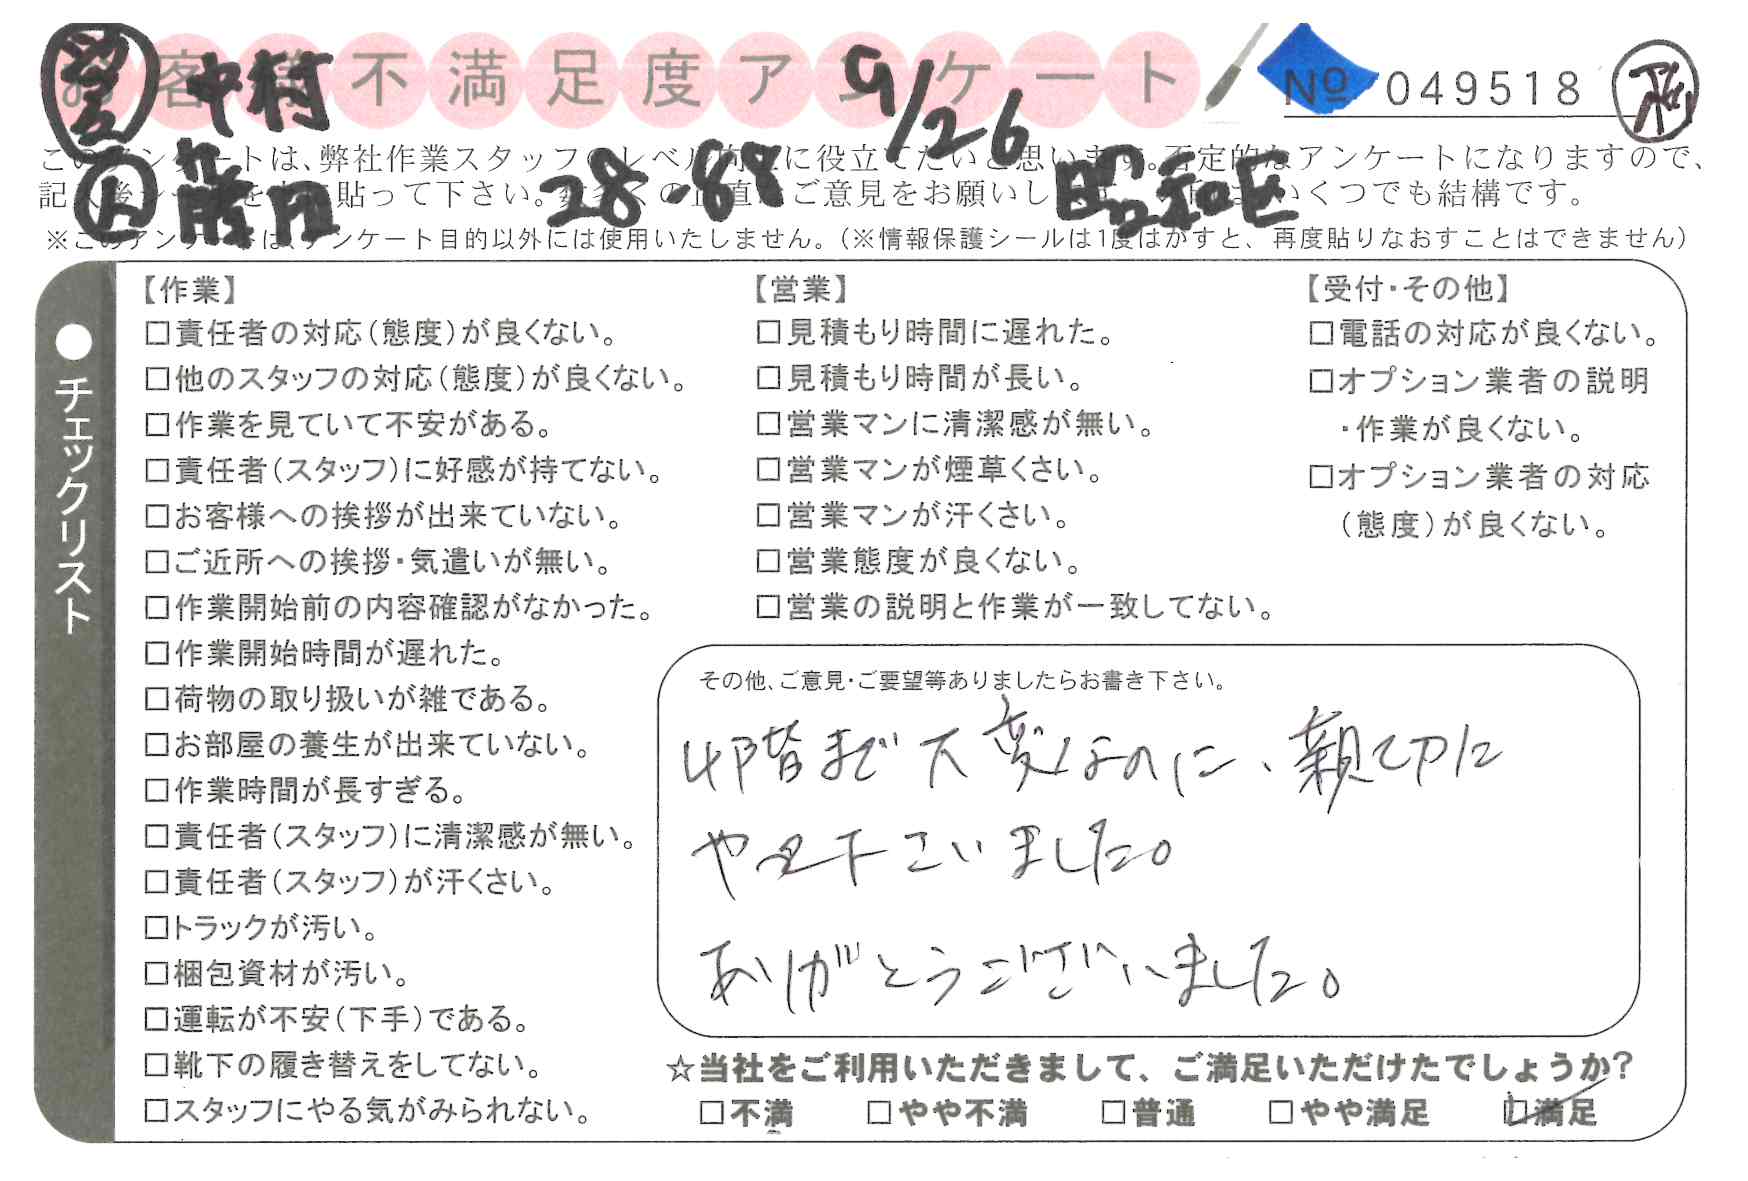 お客様不満足度アンケート
中村
9/26
Nº 049518
このアンケートは、弊社作業スタッフのレベル向上に役立てたいと思います。否定的なアンケートになりますので、
記入後シールを 貼って下さい。数多くの正直なご意見をお願いし いくつでも結構です。
藤田 28-88 昭和区
※このアンケートは、アンケート目的以外には使用いたしません。(※情報保護シールは1度はがすと、再度貼りなおすことはできません)
●チェックリスト
【作業】
□責任者の対応(態度)が良くない。
□他のスタッフの対応(態度)が良くない。
□作業を見ていて不安がある。
□責任者(スタッフ)に好感が持てない。
□お客様への挨拶が出来ていない。
□ご近所への挨拶・気遣いが無い。
□作業開始前の内容確認がなかった。
□作業開始時間が遅れた。
□荷物の取り扱いが雑である。
□お部屋の養生が出来ていない。
□作業時間が長すぎる。
□責任者(スタッフ)に清潔感が無い。
□責任者(スタッフ)が汗くさい。
□トラックが汚い。
□梱包資材が汚い。
□運転が不安(下手)である。
□靴下の履き替えをしてない。
□スタッフにやる気がみられない。
【営業】
□見積もり時間に遅れた。
□見積もり時間が長い。
□営業マンに清潔感が無い。
□営業マンが煙草くさい。
□営業マンが汗くさい。
□営業態度が良くない。
□営業の説明と作業が一致してない。
【受付・その他】
□電話の対応が良くない。
□オプション業者の説明
・作業が良くない。
□オプション業者の対応
(態度)が良くない。
その他、ご意見・ご要望等ありましたらお書き下さい。
4階まで大変なのに、親切に
やって下さいました。
ありがとうございました。
☆当社をご利用いただきまして、ご満足いただけたでしょうか?
□不満 □やや不満 □普通 □やや満足 □満足